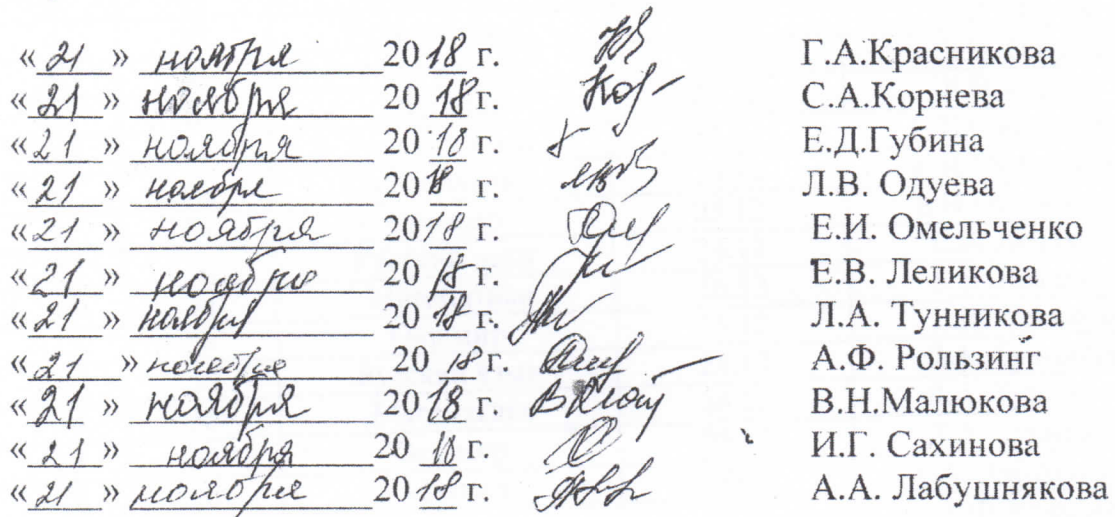 «21» ноября 2018 г. Г.А.Красникова
«21» ноября 2018 г. С.А.Корнева
«21» ноября 2018 г. Е.Д.Губина
«21» ноября 2018 г. Л.В. Одуева
«21» ноября 2018 г. Е.И. Омельченко
«21» ноября 2018 г. Е.В. Леликова
«21» ноября 2018 г. Л.А. Тунникова
«21» ноября 2018 г. А.Ф. Рользинг
«21» ноября 2018 г. В.Н.Малюкова
«21» ноября 2018 г. И.Г. Сахинова
«21» ноября 2018 г. А.А. Лабушнякова